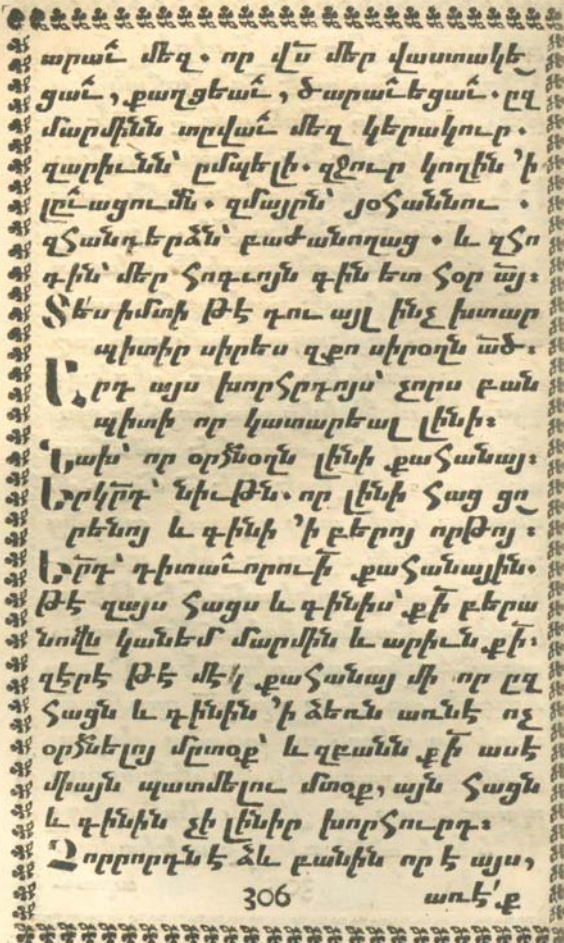 արաւ̂ մեզ. որ վս̃ մեր վաստակե
ցաւ̂, քաղցեաւ̂, ծարաւ̂եցաւ̂. ըզ
մարմինն տրվաւ̂ մեզ կերակուր.
զարիւնն՝ ըմպելի. զջուր կողին ՚ի
լըւ̂ացումն. զմայրն՝ յօհաննու.
զհանդերձն՝ բաժանողաց. և զհո
գին՝ մեր հոգւոյն գին ետ հօր ա̃յ։
Տե՛ս իմտի թէ դու այլ ինչ խտար
պիտիր սիրես զքո սիրօղն ա̃ծ։
Երդ այս խորհրդոյս՝ չորս բան
պիտի որ կատարեալ լինի։
Նախ՝ որ օրհնօղն լինի քահանայ։
Երկրդ՝ նիւթն. որ լինի հաց ցո
րենոյ և գինի ՚ի բերոյ որթոյ։
Երդ՝ դիտաւ̂որուի̃ քահանային.
թէ զայս հացս և գինիս՝ քի̃ բերա
նովն կանեմ մարմին և արիւն քի̃։
զերէ թէ մէկ քահանայ մի որ ըզ
հացն և գինին ՚ի ձեռն առնէ ոչ
օրհնելոյ մըտօք՝ և զբանն քի̃ ասէ
միայն պատմելու մտօք, այն հացն
և գինին չի լինիր խորհուրդ։
Չորրորդն է ձև բանին որ է այս,
306 առե՛ք